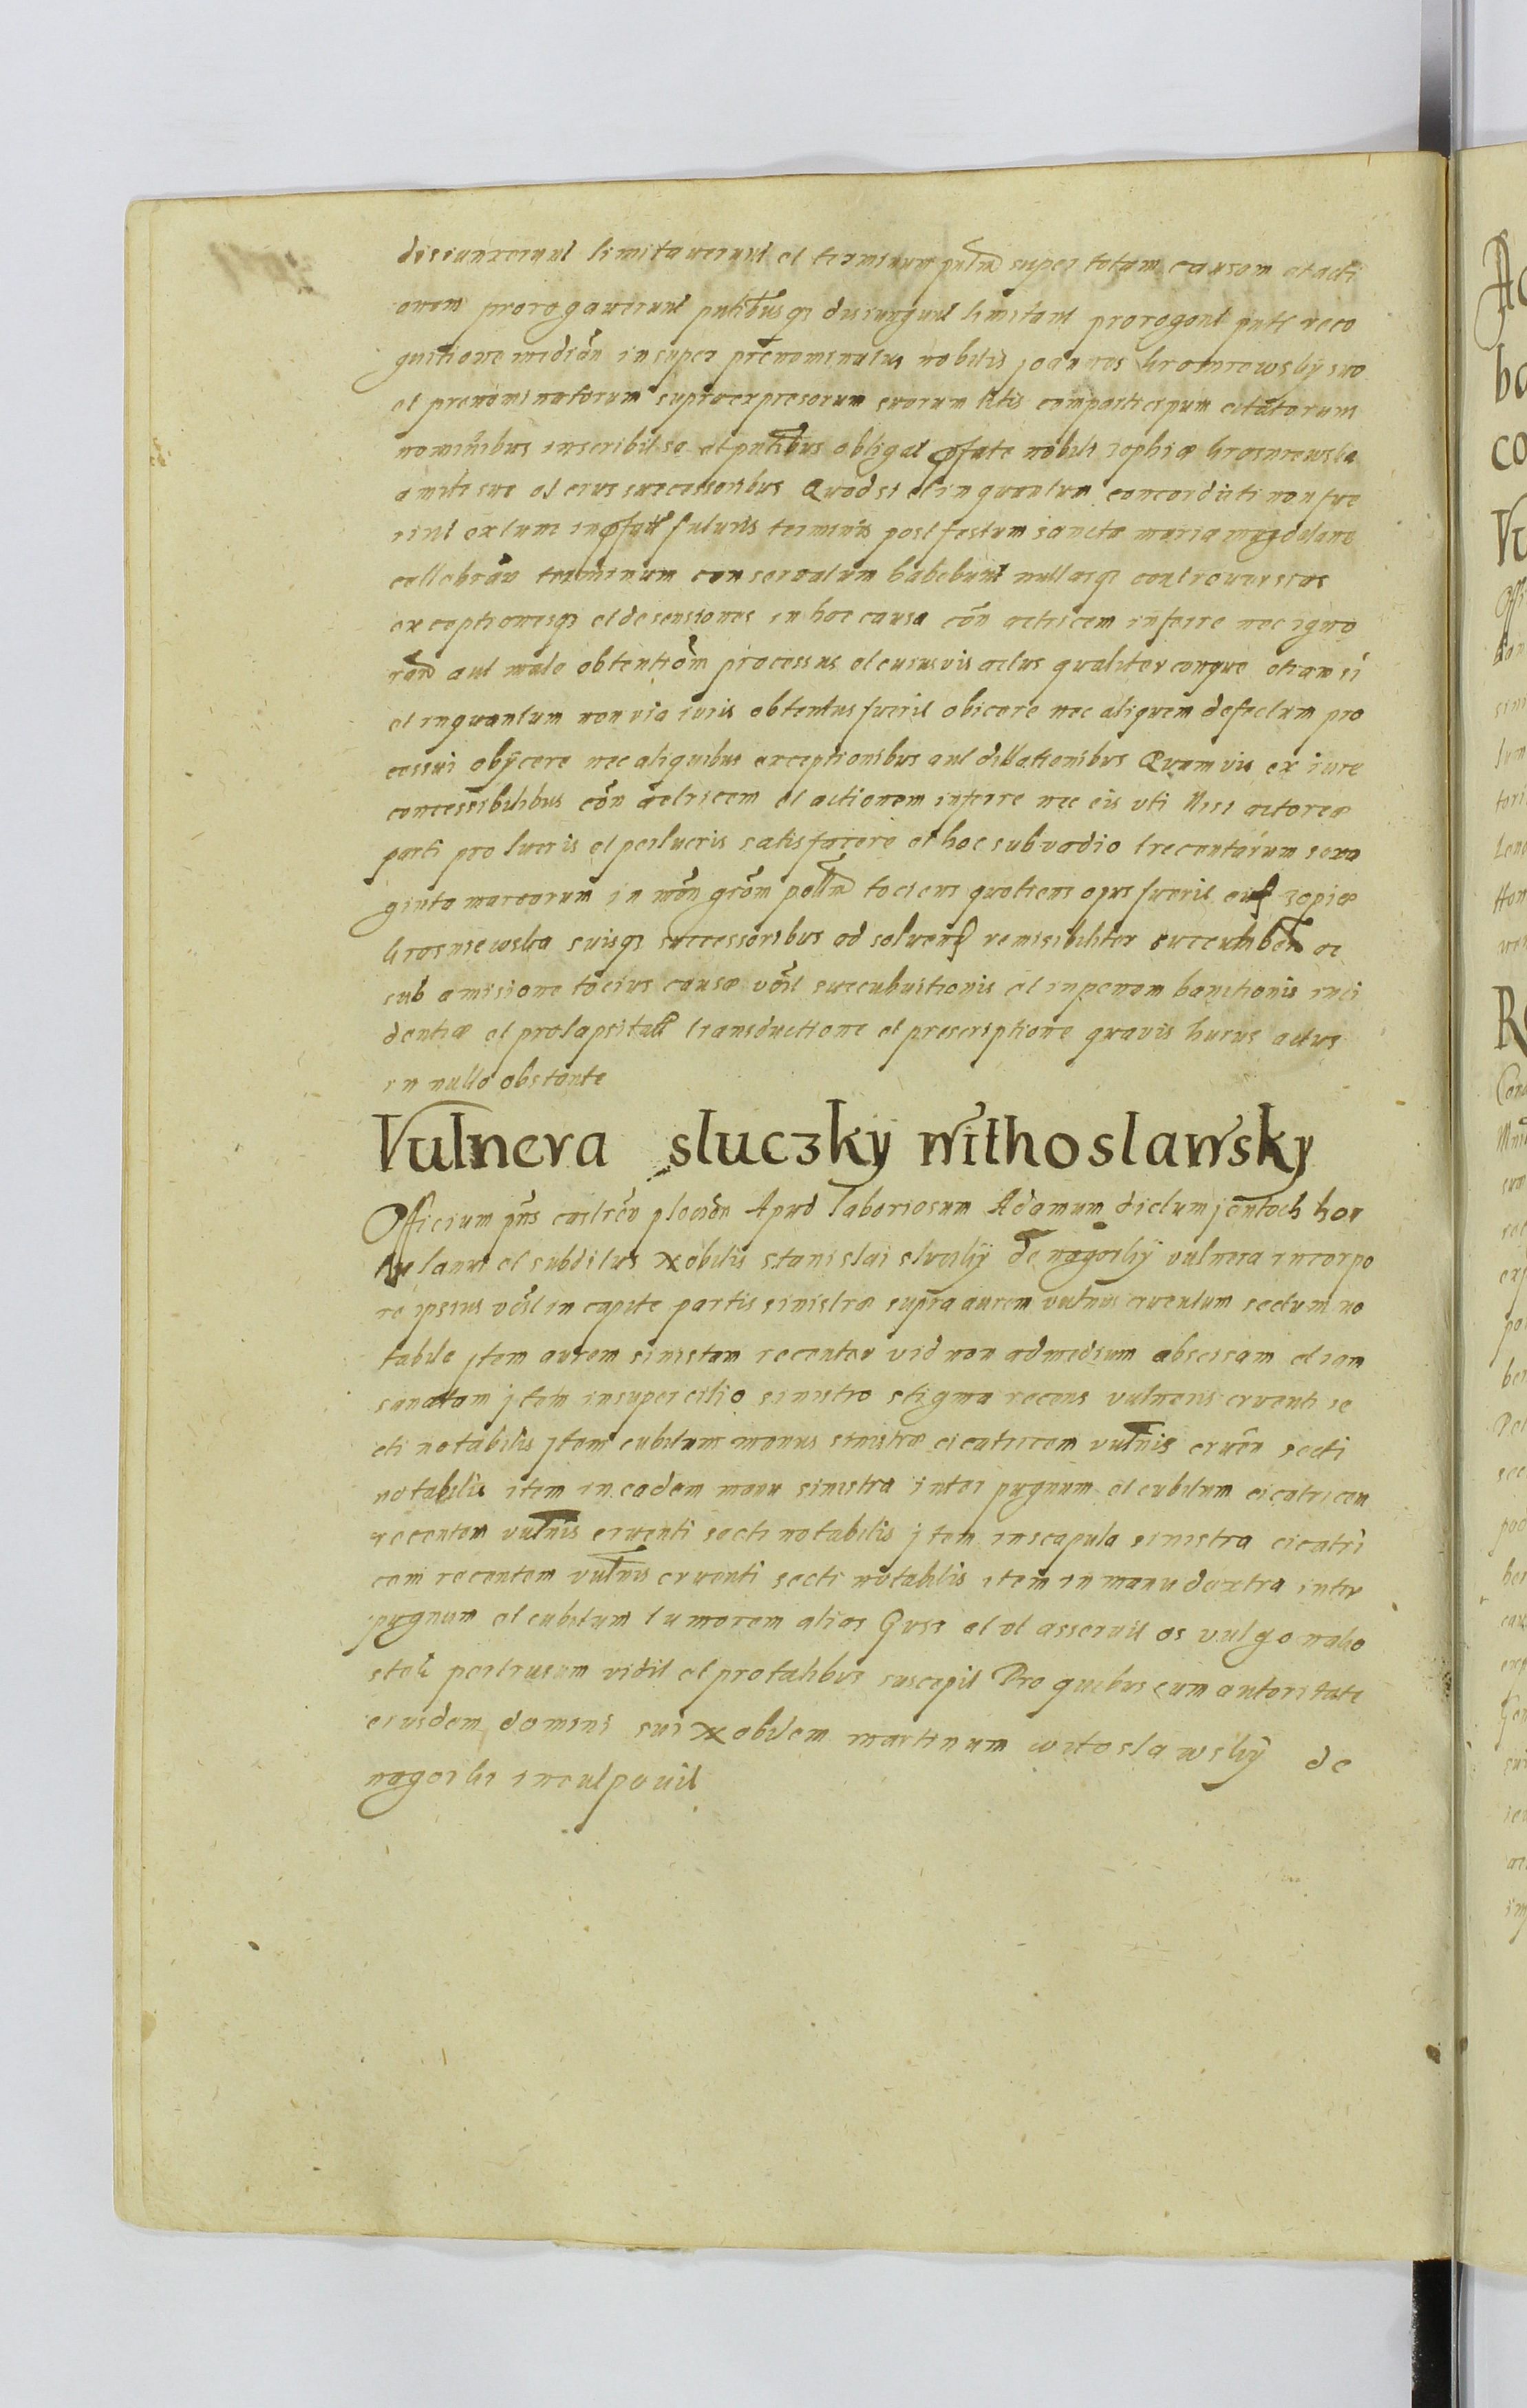 disiunxerunt limitaverunt et terminum pntm super totam causam et acti
onem prorogaverunt pntibusqz disiungunt limitant prorogant pnti reco
gnitione median insuper prenominatus nobilis joannes krosnrewsky suo
et prenominatorum supraexpresorum suorum litis comparticipum citatorum
nominibus inscribit se et pntibus obligat pfate nobili zophiæ krosnrewska
amite sue et eius successoribus Quod si et in quantum concordati non fue
rint extunc in pfatis futuris terminis post festum sancte maria magdalene
cellebran terminum conservatum habebunt nullasqz controversias
exceptionesqz et desensiones in hoc causa con actricem inferre nec igno
rand aut male obtention processus et cuiusvis actus qualiterconque etiam si
et inquantum non via iuris obtentus fuerit obicere nec aliquem defectum pro
cessui obÿcere nec aliquibus exceptionibus aut dillationibus Quamvis ex iure
concessibilibus con actricem et actionem inferre nec eis uti Nisi actoreæ
parti pro lucris et perlucris satisfacere et hoc sub vadio trecentarum sexa
ginta marcarum in mon grom pollm tociens quotiens opus fuerit eis zopiæ
krosniewska suisqz successoribus ad solvend remisibiliter succumben ac
sub amisione tocius causæ vdlt succubuitionis et in penam banitionis inci
dentiæ et prolapsitatis transductione et prescriptione quavis huius actus
in nullo obstante
Vulnera sluczkÿ withoslawsky
Officium pns castren plocen Apud laboriosum Adamum dictum jantoch hor
tulanus et subditus Nobilis stanislai sluczkÿ de nagorkÿ vulnera in corpo
re ipsius vdlt in capite partis sinistræ supra aurem vulnus cruentum sectum no
tabile jtem aurem sinistam recenter vid non ad medium abscisam et iam
sanatam jtem in supercilio sinistro stigma recens vulneris cruenti se
cti notabilis jtem cubitum manus sinistræ cicatricem vulnis cruen secti
notabilis item in eadem manu sinistra inter pugnum et cubitum cicatricem
recentem vulnis cruenti secti notabilis jtem in scapula sinistra cicatri
cem recentem vulnis cruenti secti notabilis item in manu dextra inter
pugnum et cubitum tumorem alias Guss et ut asseruit os vulgo nako
stek pertrusum vidit et pro talibus suscepit Pro quibus cum autoritate
eiusdem domini sui Nobilem martinum witoslawskÿ de
nagorki inculpavit